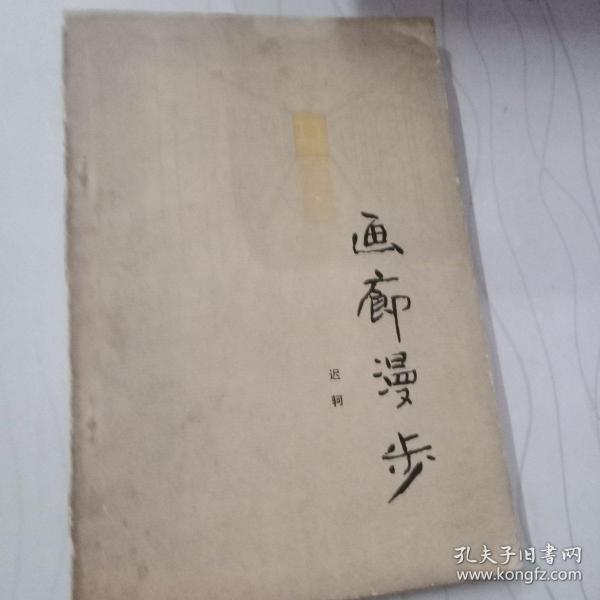 画廊漫步
迟轲
孔夫子旧書网
www.kongfz.com